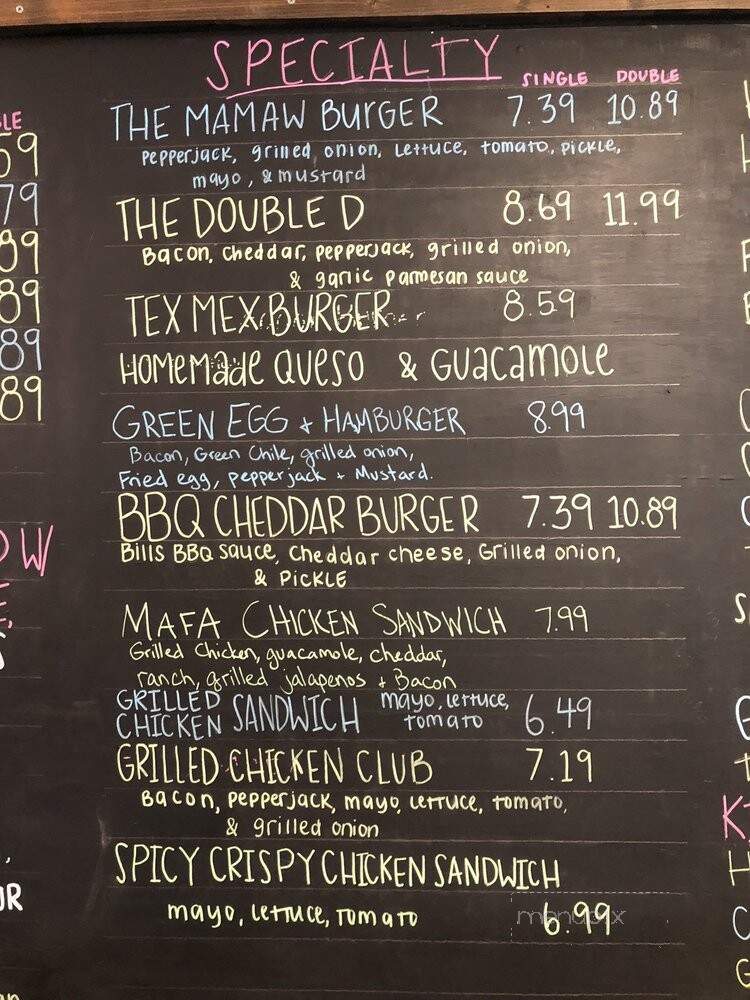 SPECIALTY
SINGLE DOUBLE
THE MAMAW BURGER 7.39 10.89
pepperjack, grilled onion, lettuce, tomato, pickle,
mayo, & mustard
THE DOUBLE D 8.69 11.99
Bacon, cheddar, pepperjack, grilled onion,
& garlic parmesan sauce
TEX MEX BURGER 8.59
HOMEMADE QUESO & GUACAMOLE
GREEN EGG + HAMBURGER 8.99
Bacon, Green Chile, grilled onion,
Fried egg, pepperjack + Mustard.
BBQ CHEDDAR BURGER 7.39 10.89
Bills BBQ sauce, cheddar cheese, Grilled onion,
& PICKLE
MAFA CHICKEN SANDWICH 7.99
Grilled Chicken, guacamole, cheddar,
ranch, grilled jalapenos + Bacon
GRILLED CHICKEN SANDWICH mayo, lettuce, tomato 6.49
GRILLED CHICKEN CLUB 7.19
Bacon, pepperjack, mayo, lettuce, tomato,
& grilled onion
SPICY CRISPY CHICKEN SANDWICH
mayo, lettuce, tomato 6.99
menupix